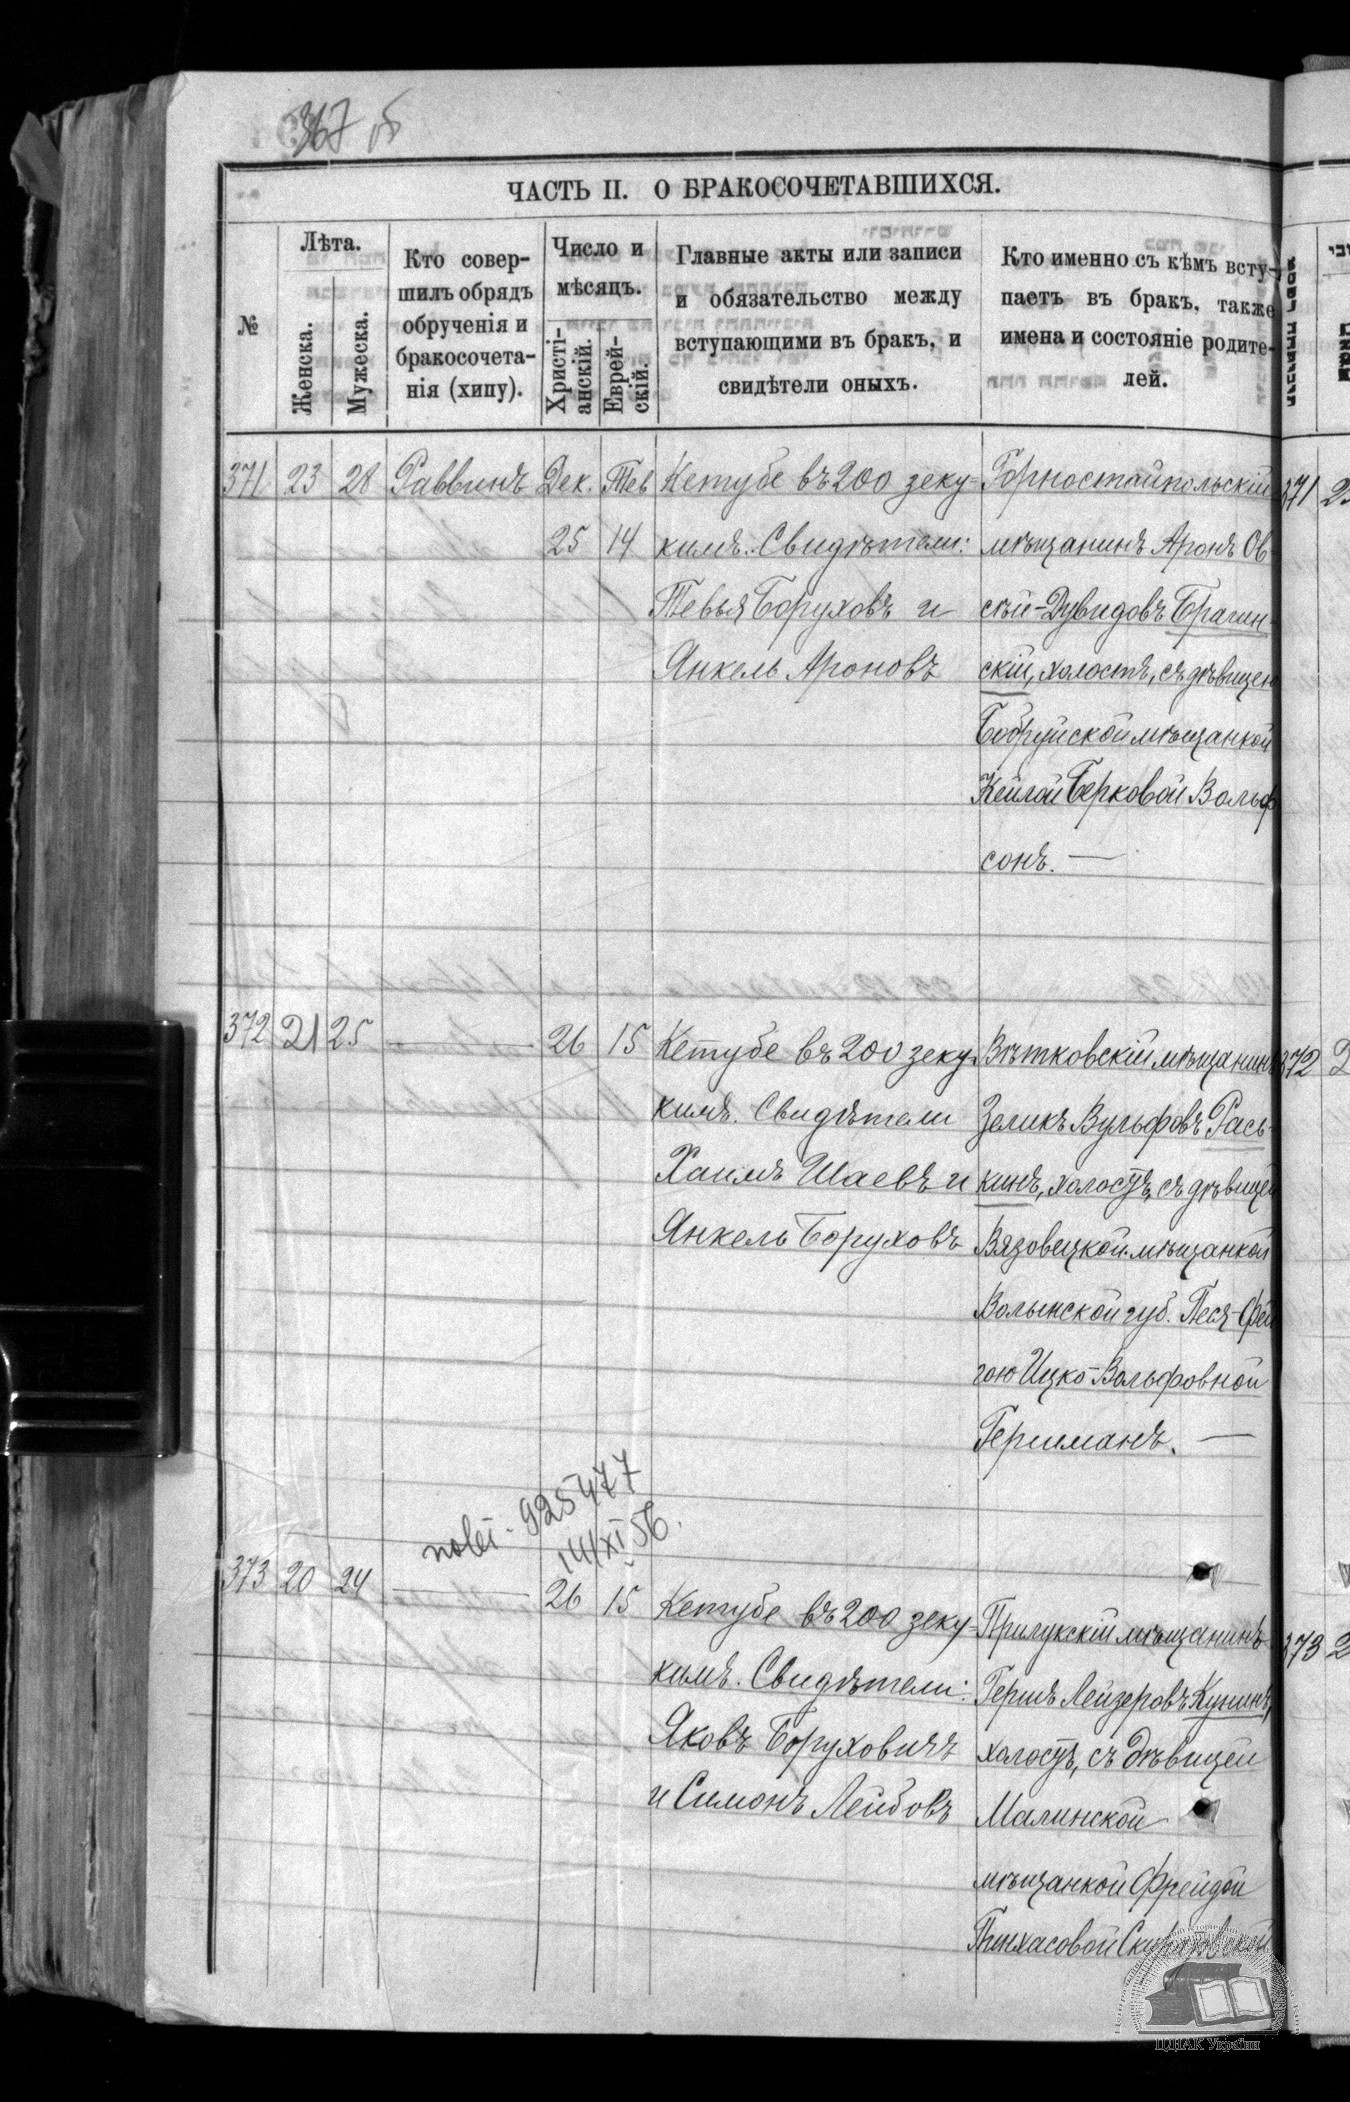 367 об
ЧАСТЬ II. О БРАКОСОЧЕТАВШИХСЯ.
№
Лѣта.
Женска.
Мужеска.
Кто совер-
шилъ обрядъ
обрученія и
бракосочета-
нія (хипу).
Число и
мѣсяцъ.
Христі-
анскій.
Еврей-
скій.
Главные акты или записи
и обязательство между
вступающими въ бракъ, и
свидѣтели оныхъ.
Кто именно съ кѣмъ всту-
паетъ въ бракъ, также
имена и состояніе родите-
лей.
371 23 28 Раввинъ Дек. Тев
25 14
Кетубе въ 200 зеку-
кимъ. Свидѣтели:
Тевья Боруховъ и
Янкель Ароновъ
Горностайпольскій
мѣщанинъ Аронъ Ов-
сѣй-Дувидовъ Брагин-
скій, холостъ, съ дѣвицею
Бобруйской мѣщанкой
Кейлой Берковой Вольф
сонъ. —
372 21 25 — 26 15
Кетубе въ 200 зеку-
кимъ. Свидѣтели
Хаимъ Шаевъ и
Янкель Боруховъ
Вѣтковскій мѣщанинъ
Зеликъ Вульфовъ Рась-
кинъ, холостъ, съ дѣвицей
Вязовецкой мѣщанкой
Волынской губ. Песя-Фей
гою Ицко-Вольфовной
Геришманъ. —
925477
14/XI 56.
373 20 24 — 26 15
Кетубе въ 200 зеку-
кимъ. Свидѣтели:
Яковъ Боруховичъ
и Симонъ Лейбовъ
Прилукскій мѣщанинъ
Гершъ Лейзеровъ Кунинъ,
холостъ, съ дѣвицей
Малинской
мѣщанкой Фрейдой
Пинхасовой
371 2
372 2
373 2
ЦДІАК України